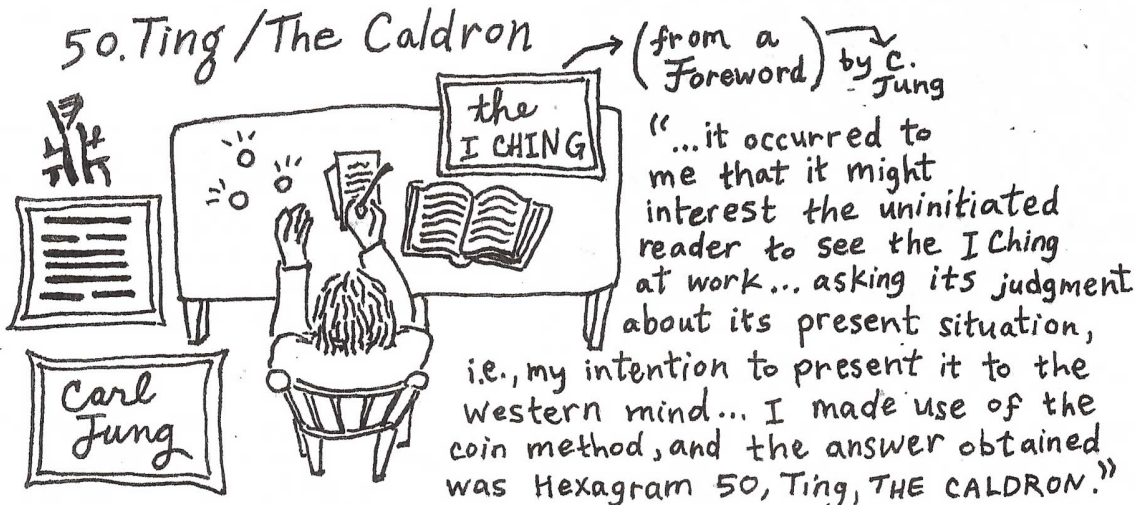 50. Ting / The Caldron
(from a
Foreword)
by C.
Jung
the
I CHING
"...it occurred to
me that it might
interest the uninitiated
reader to see the I Ching
at work... asking its judgment
about its present situation,
i.e., my intention to present it to the
Western mind... I made use of the
coin method, and the answer obtained
was Hexagram 50, Ting, THE CALDRON."
Carl
Jung